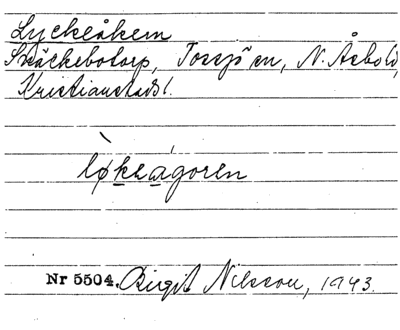 Lyckeåkern
Skäckebotorp, Torsjö sn, N. Åsbo hd,
Kristianstads l.
lø̀kkeágoren
Nr 5504. Birgit Nilsson, 1943.